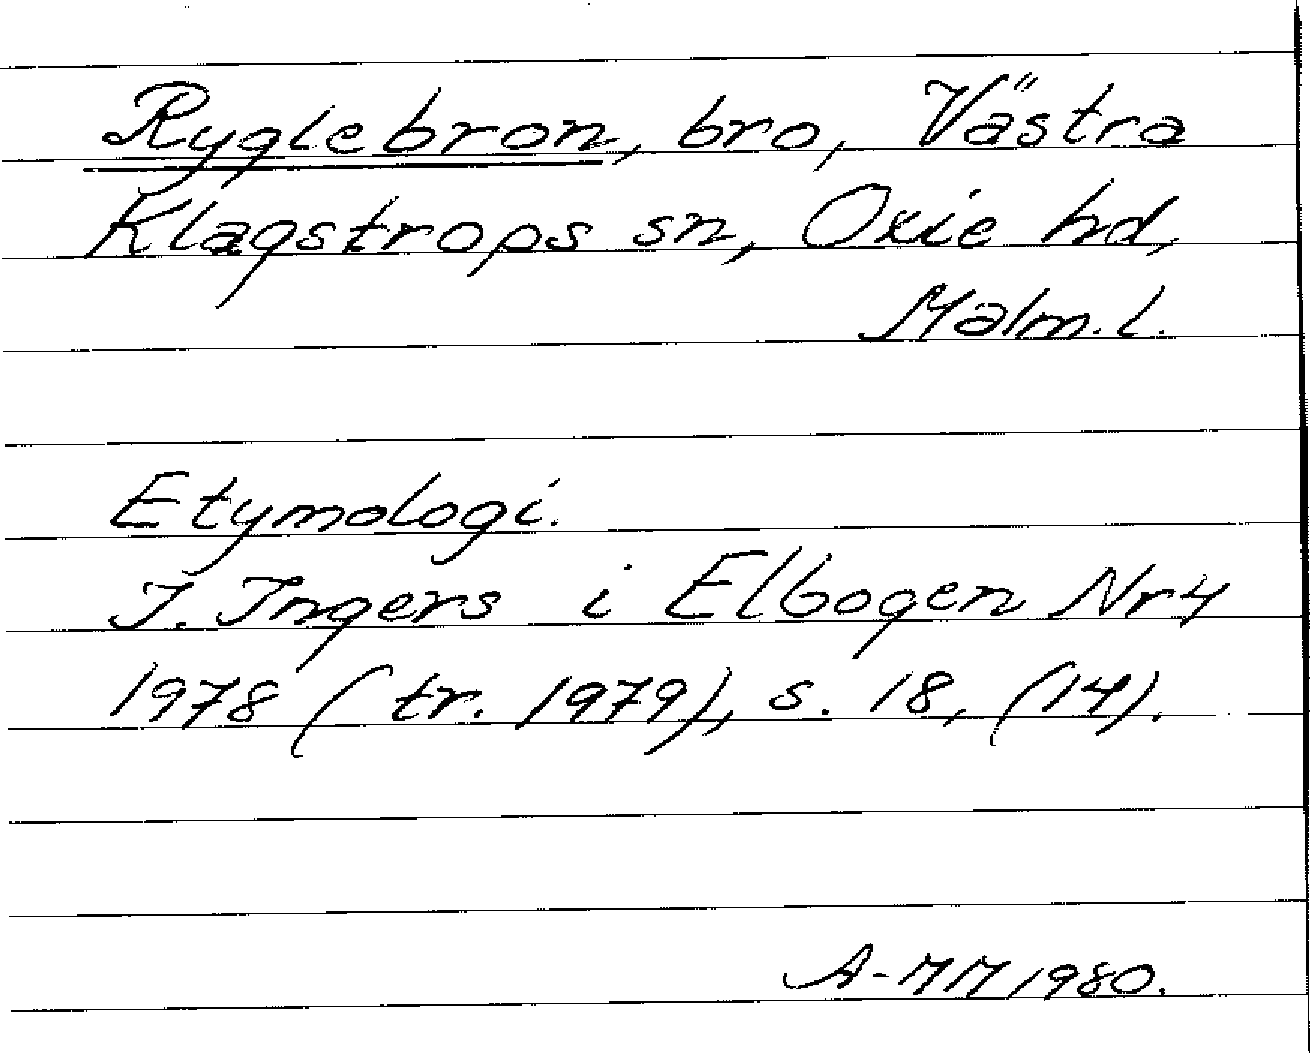 Ryglebron, bro, Västra
Klagstrops sn, Oxie hd,
Malm. l.
Etymologi.
I. Ingers i Elbogen Nr 4
1978 (tr. 1979), s. 18, (14).
A-MM 1980.